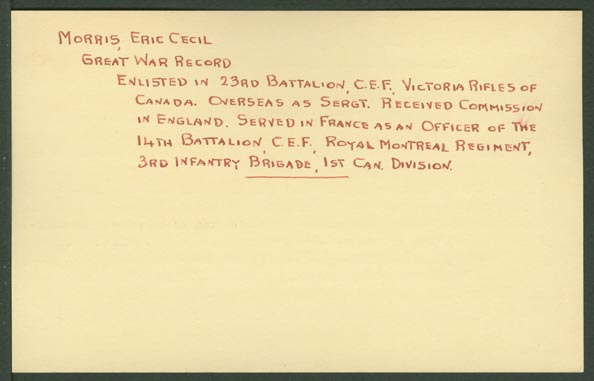 MORRIS, ERIC CECIL
GREAT WAR RECORD
ENLISTED IN 23RD BATTALION, C.E.F., VICTORIA RIFLES OF
CANADA. OVERSEAS AS SERGT. RECEIVED COMMISSION
IN ENGLAND. SERVED IN FRANCE AS AN OFFICER OF THE
14TH BATTALION, C.E.F., ROYAL MONTREAL REGIMENT,
3RD INFANTRY BRIGADE, 1ST CAN. DIVISION.